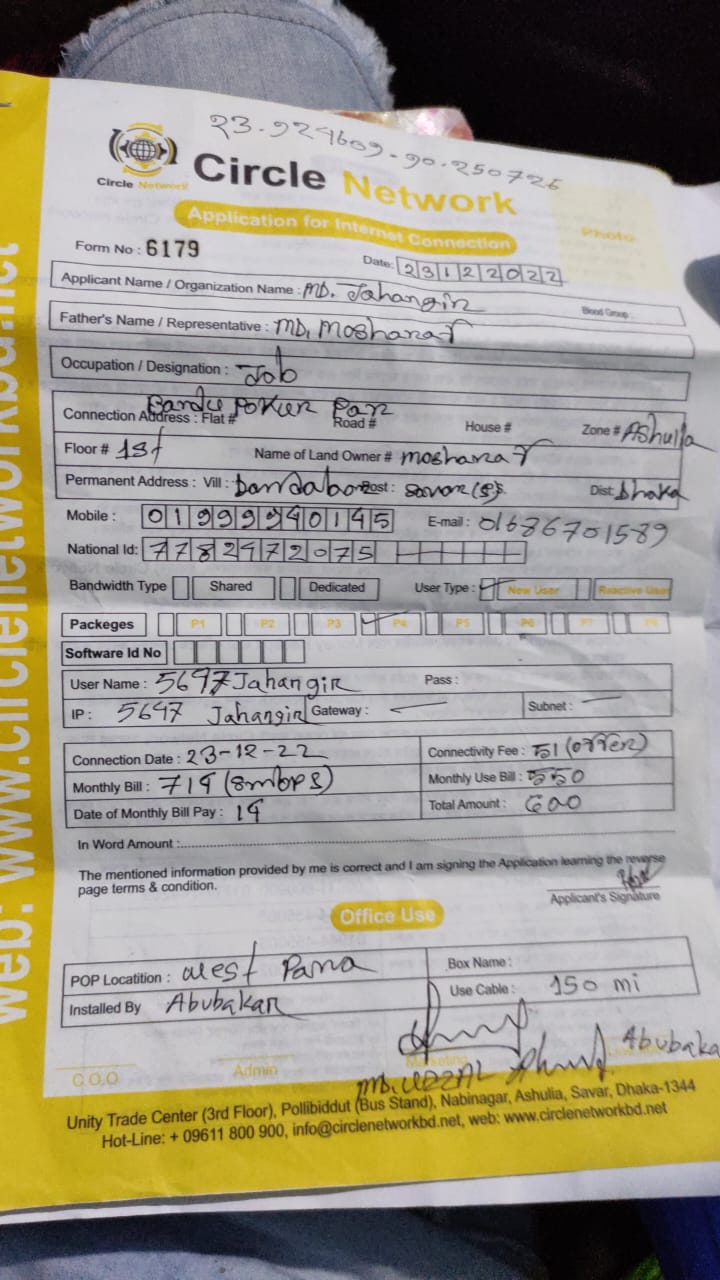 23.924609-90.250726
Circle Network
Circle Network
Application for Internet Connection
Photo
Form No : 6179
Date: 23122022
Applicant Name / Organization Name : MD. Jahangir
Blood Group :
Father's Name / Representative : MD. Mosharaf
Occupation / Designation : Job
Connection Address : Flat # Bandu Pokur Par Road # House # Zone # Ashulia
Floor # 1st Name of Land Owner # Mosharaf
Permanent Address : Vill : Post : Savar Dist: Dhaka
Mobile : 01999940145 E-mail : 01686701589
National Id: 7782472075
Bandwidth Type Shared Dedicated User Type : New User Reactive User
Packeges P1 P2 P3 P4 P5 P6 P7 P8
Software Id No
User Name : 5697Jahangir Pass :
IP : 5697 Jahangir Gateway : Subnet :
Connection Date : 23-12-22 Connectivity Fee : 51 (offer)
Monthly Bill : 719 (8mbps) Monthly Use Bill : 550
Date of Monthly Bill Pay : 19 Total Amount : 600
In Word Amount :
The mentioned information provided by me is correct and I am signing the Application learning the reverse
page terms & condition.
Applicant's Signature
Office Use
POP Locatition : west Para Box Name :
Installed By Abubakar Use Cable : 150 mi
Abubaka
C.O.O Admin Marketing
Unity Trade Center (3rd Floor), Pollibiddut (Bus Stand), Nabinagar, Ashulia, Savar, Dhaka-1344
Hot-Line: + 09611 800 900, info@circlenetworkbd.net, web: www.circlenetworkbd.net
web: www.circlenetworkbd.net